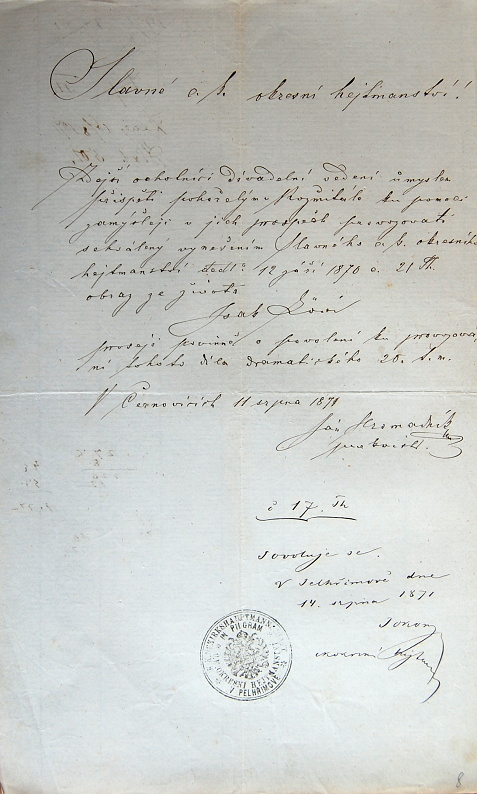 Slavné c. k. okresní hejtmanství!
Zdejší ochotníci divadelní vedeni úmyslem
přispěti pohořelým Rožmitála ku pomoci
zamýšlejí v jich prospěch provozovati
schválený vynešením Slavného c. k. okresního
hejtmanství dedt: 12 září 1870 č. 21 Th.
obraz ze života
Isak Levi
prosejí povinně o povolení ku provozová-
ní tohoto díla dramatického 20. t. m.
V Černovicích 11 srpna 1871
Jan Hromadník
č 17. Th
Povoluje se.
V Pelhřimově dne
14. srpna 1871
K. K. BEZIRKSHAUPTMANNSCHAFT IN PILGRAM
C. K. OKRESNÍ HEJTMANSTVÍ V PELHŘIMOVĚ
8